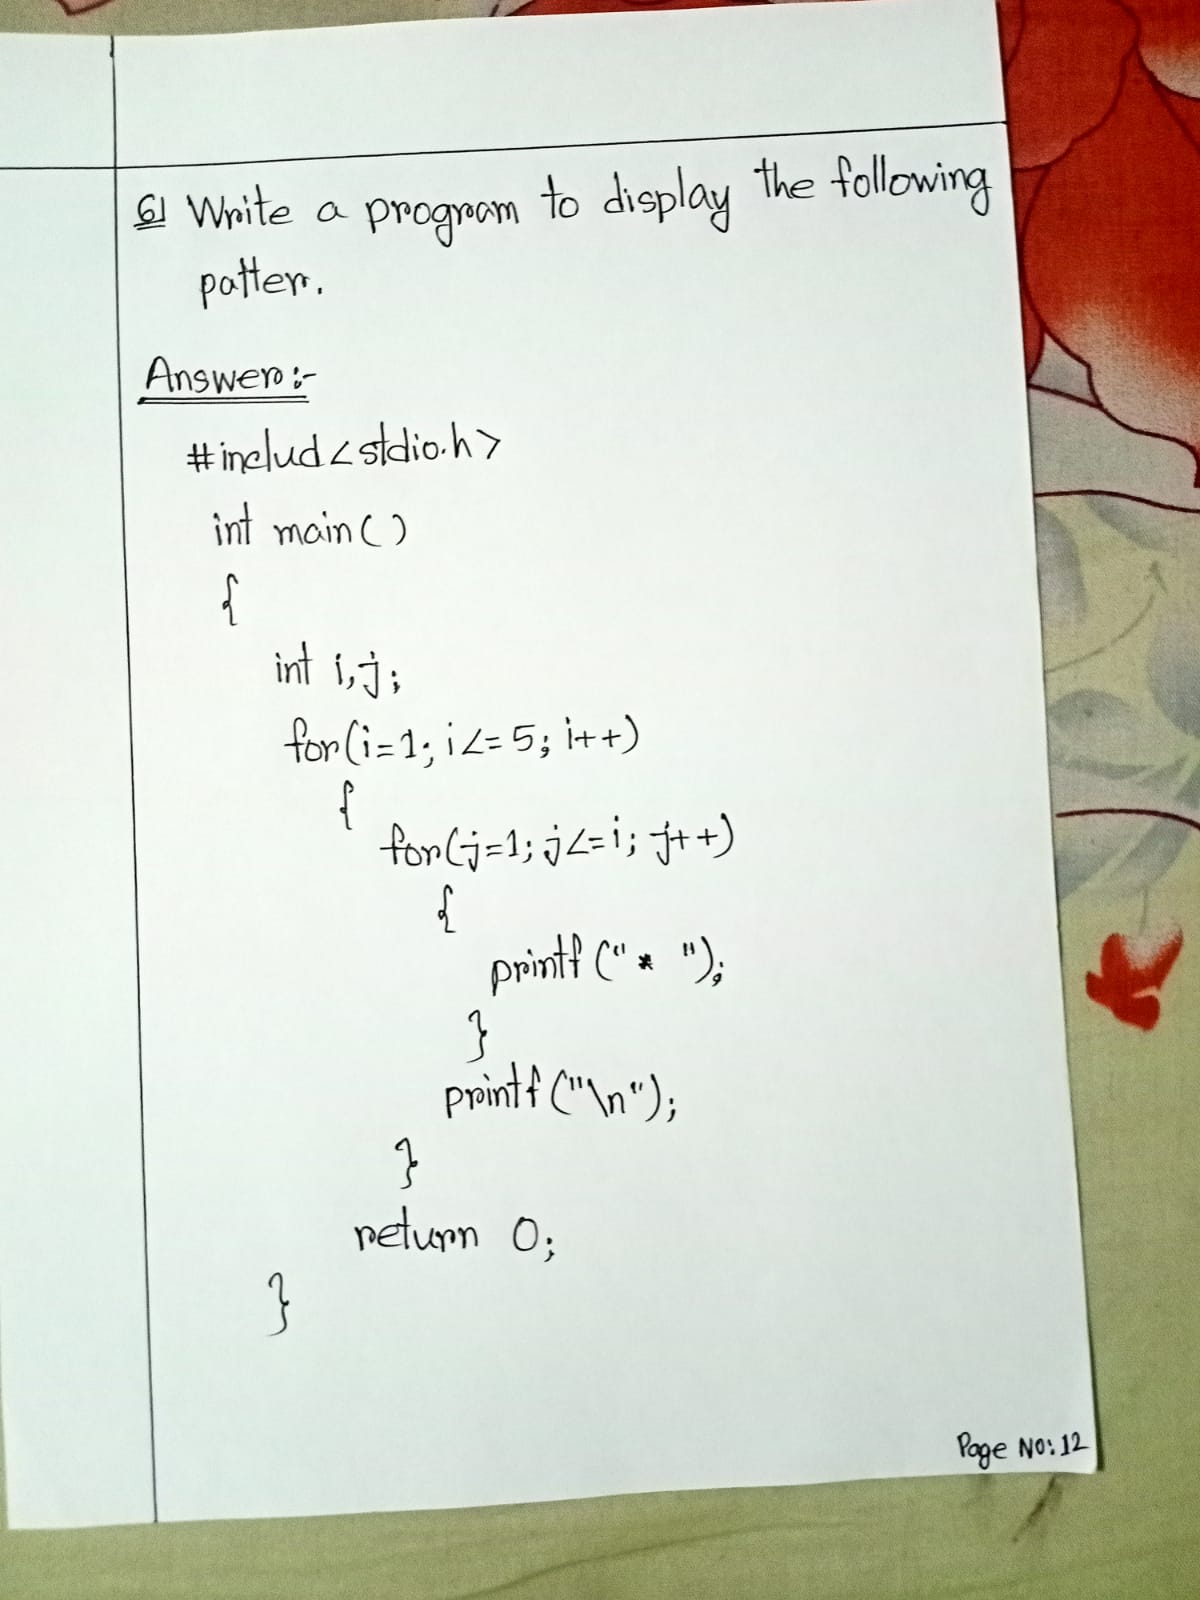 6] Write a program to display the following
patterr.
Answer :-
#includ<stdio.h>
int main()
{
int i,j;
for(i=1; i<=5; i++)
{
for(j=1; j<=i; j++)
{
printf("* ");
}
printf("\n");
}
return 0;
}
Page No: 12